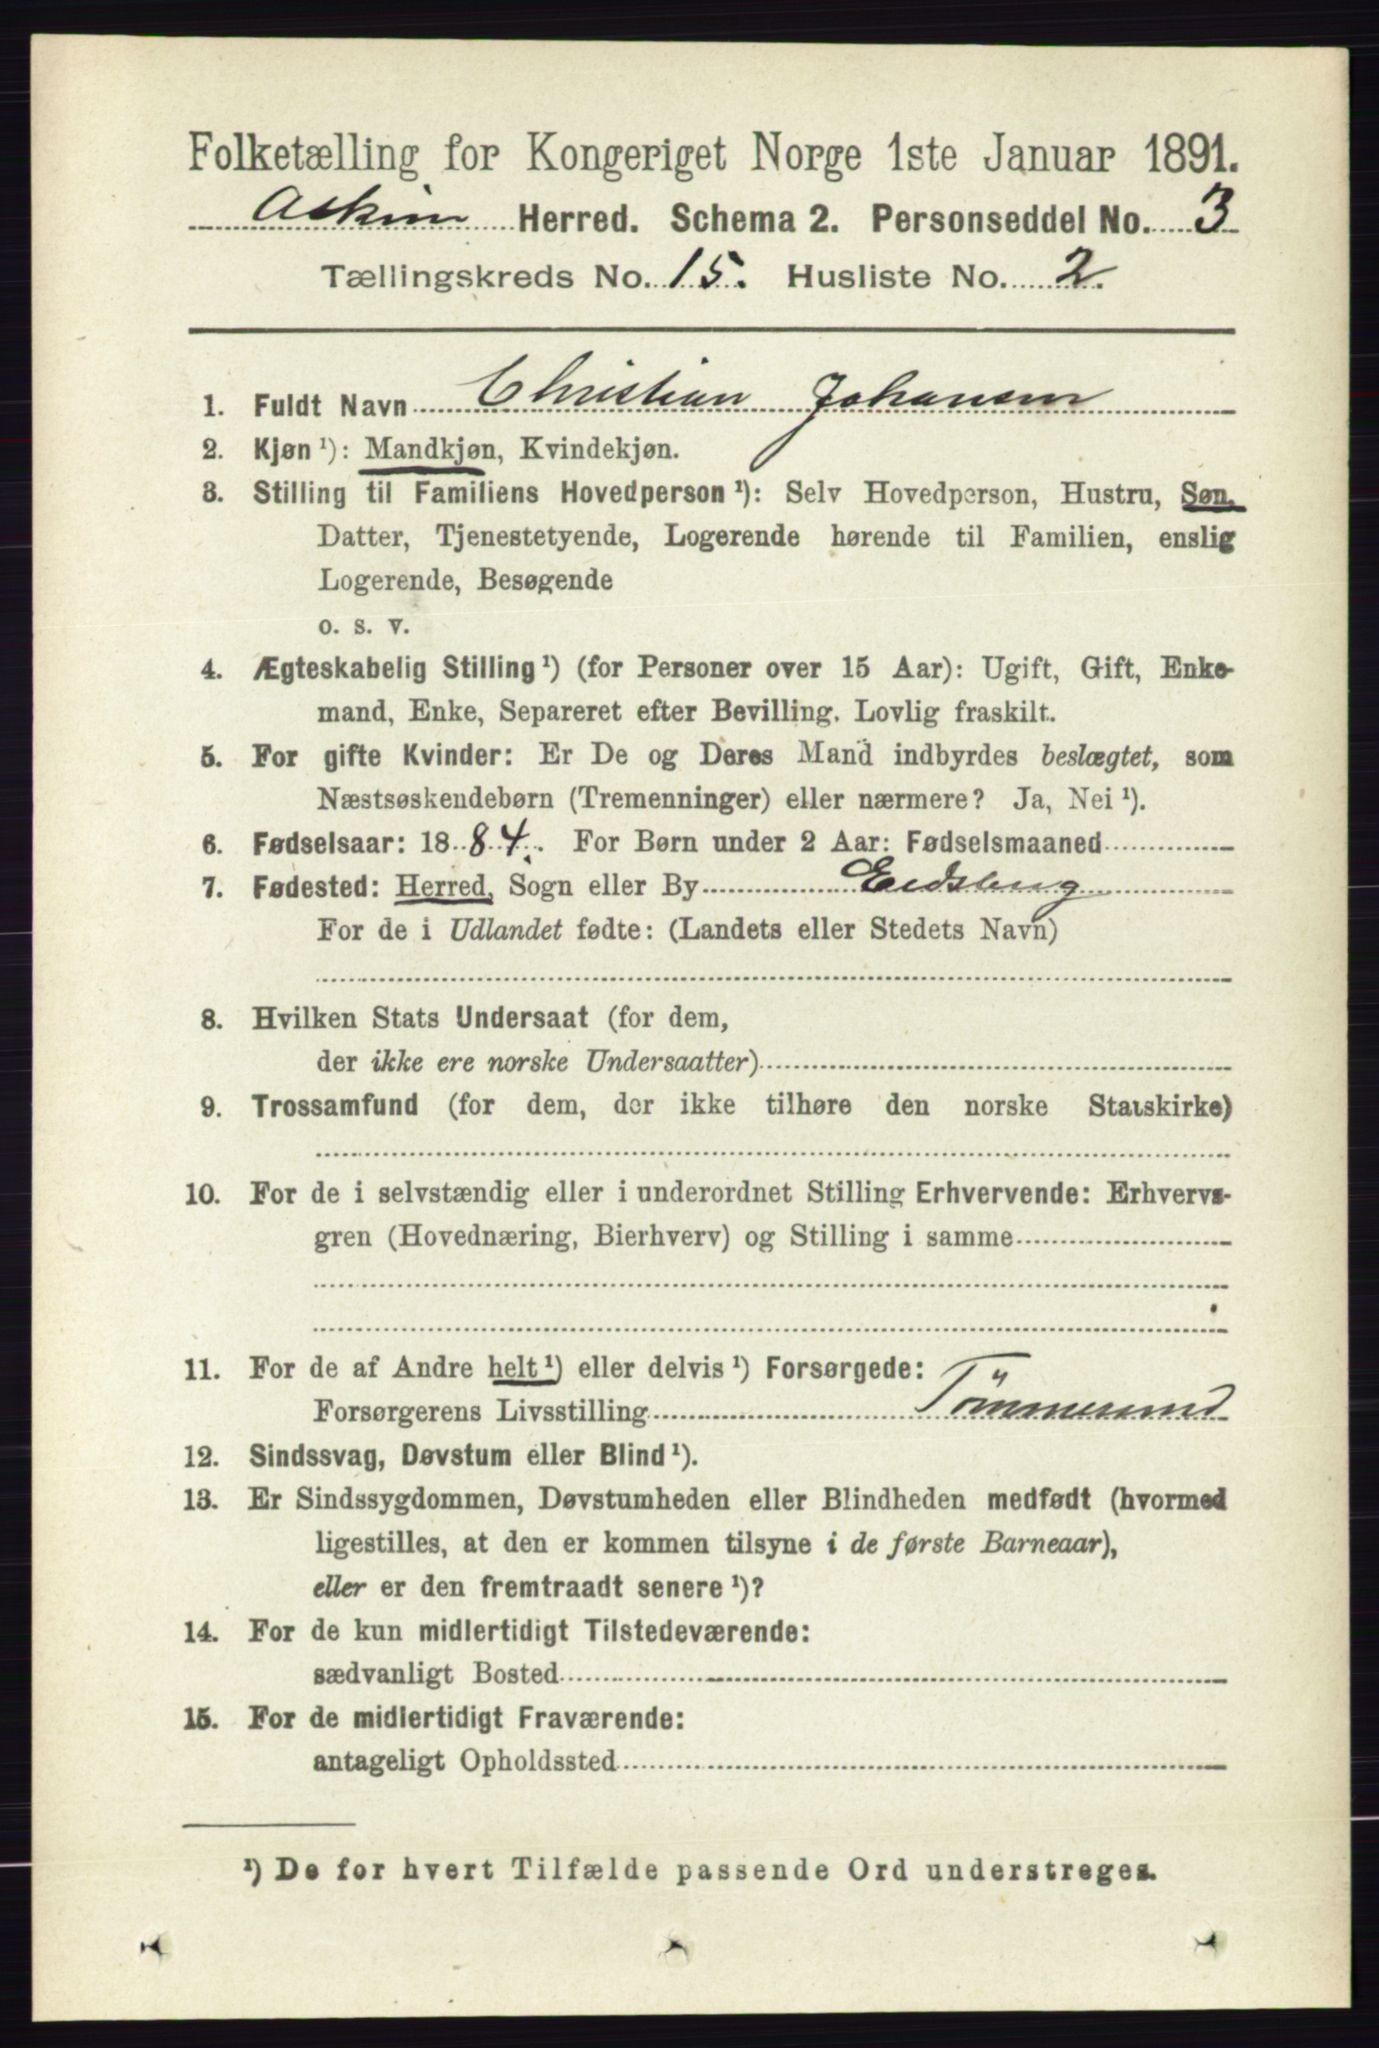 Folketælling for Kongeriget Norge 1ste Januar 1891.
Askim Herred. Schema 2. Personseddel No. 3
Tællingskreds No. 15. Husliste No. 2.
1. Fuldt Navn Christian Johansen
2. Kjøn ¹): Mandkjøn, Kvindekjøn.
3. Stilling til Familiens Hovedperson ¹): Selv Hovedperson, Hustru, Søn,
Datter, Tjenestetyende, Logerende hørende til Familien, enslig
Logerende, Besøgende
o. s. v.
4. Ægteskabelig Stilling ¹) (for Personer over 15 Aar): Ugift, Gift, Enke-
mand, Enke, Separeret efter Bevilling. Lovlig fraskilt.
5. For gifte Kvinder: Er De og Deres Mand indbyrdes beslægtet, som
Næstsøskendebørn (Tremenninger) eller nærmere? Ja, Nei ¹).
6. Fødselsaar: 1884. For Børn under 2 Aar: Fødselsmaaned
7. Fødested: Herred, Sogn eller By Eidsberg
For de i Udlandet fødte: (Landets eller Stedets Navn)
8. Hvilken Stats Undersaat (for dem,
der ikke ere norske Undersaatter)
9. Trossamfund (for dem, der ikke tilhøre den norske Statskirke)
10. For de i selvstændig eller i underordnet Stilling Erhvervende: Erhvervs-
gren (Hovednæring, Bierhverv) og Stilling i samme
11. For de af Andre helt ¹) eller delvis ¹) Forsørgede:
Forsørgerens Livsstilling Tömmermd
12. Sindssvag, Døvstum eller Blind ¹).
13. Er Sindssygdommen, Døvstumheden eller Blindheden medfødt (hvormed
ligestilles, at den er kommen tilsyne i de første Barneaar),
eller er den fremtraadt senere ¹)?
14. For de kun midlertidigt Tilstedeværende:
sædvanligt Bosted
15. For de midlertidigt Fraværende:
antageligt Opholdssted
¹) De for hvert Tilfælde passende Ord understreges.